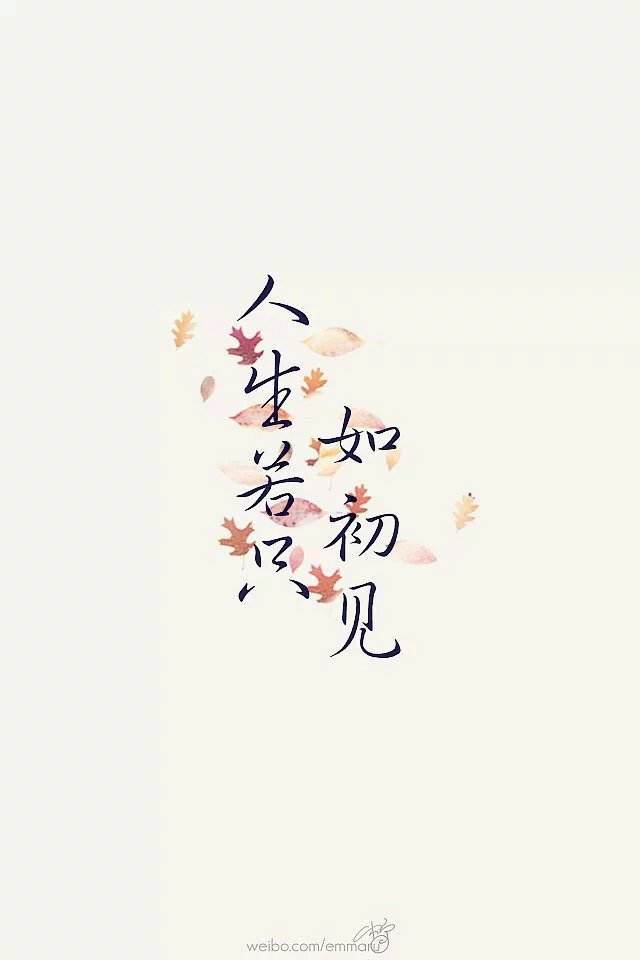 人生若只
如初见
weibo.com/emmaru